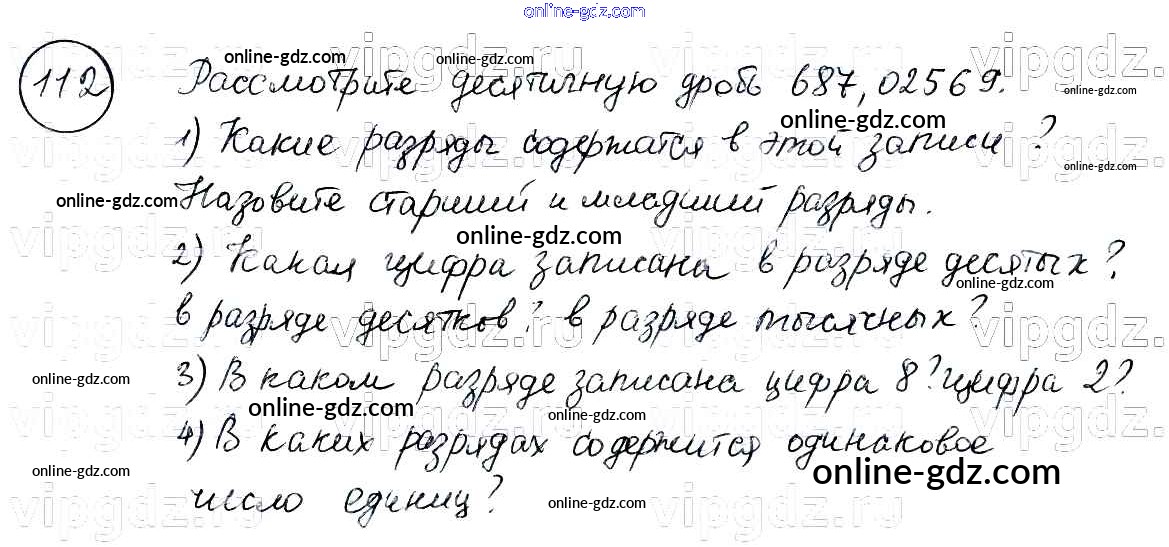 online-gdz.com
112 Рассмотрите десятичную дробь 687,02569.
1) Какие разряды содержатся в этой записи?
Назовите старший и младший разряды.
2) Какая цифра записана в разряде десятых?
в разряде десятков? в разряде тысячных?
3) В каком разряде записана цифра 8? цифра 2?
4) В каких разрядах содержится одинаковое
число единиц?